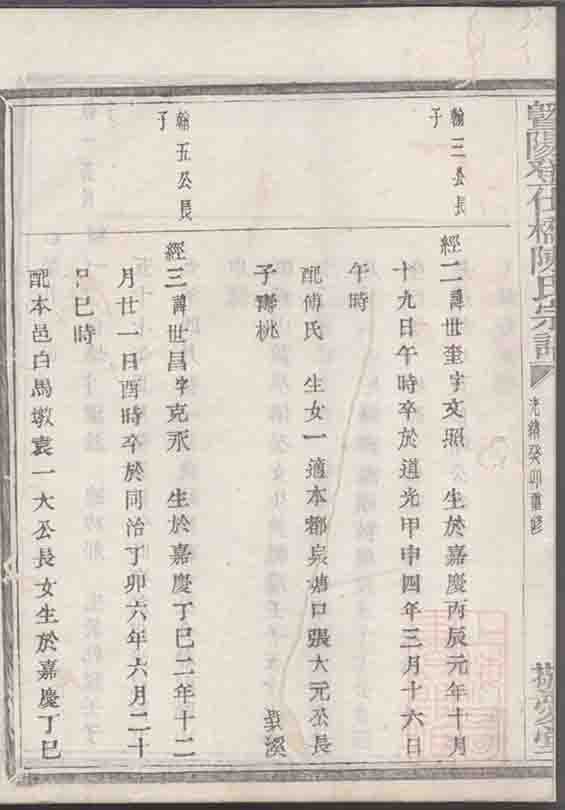 暨陽登仕橋陳氏宗譜
光緒癸卯重修
翰三公長
子
經二諱世奎字文照 生於嘉慶丙辰元年十月
十九日午時卒於道光甲申四年三月十六日
午時
配傅氏 生女一適本都泉塘口張大元公長
子壽桃
翰五公長
子
經三諱世昌字克永 生於嘉慶丁巳二年十二
月廿一日酉時卒於同治丁卯六年六月二十
日巳時
配本邑白馬墩袁一大公長女生於嘉慶丁巳